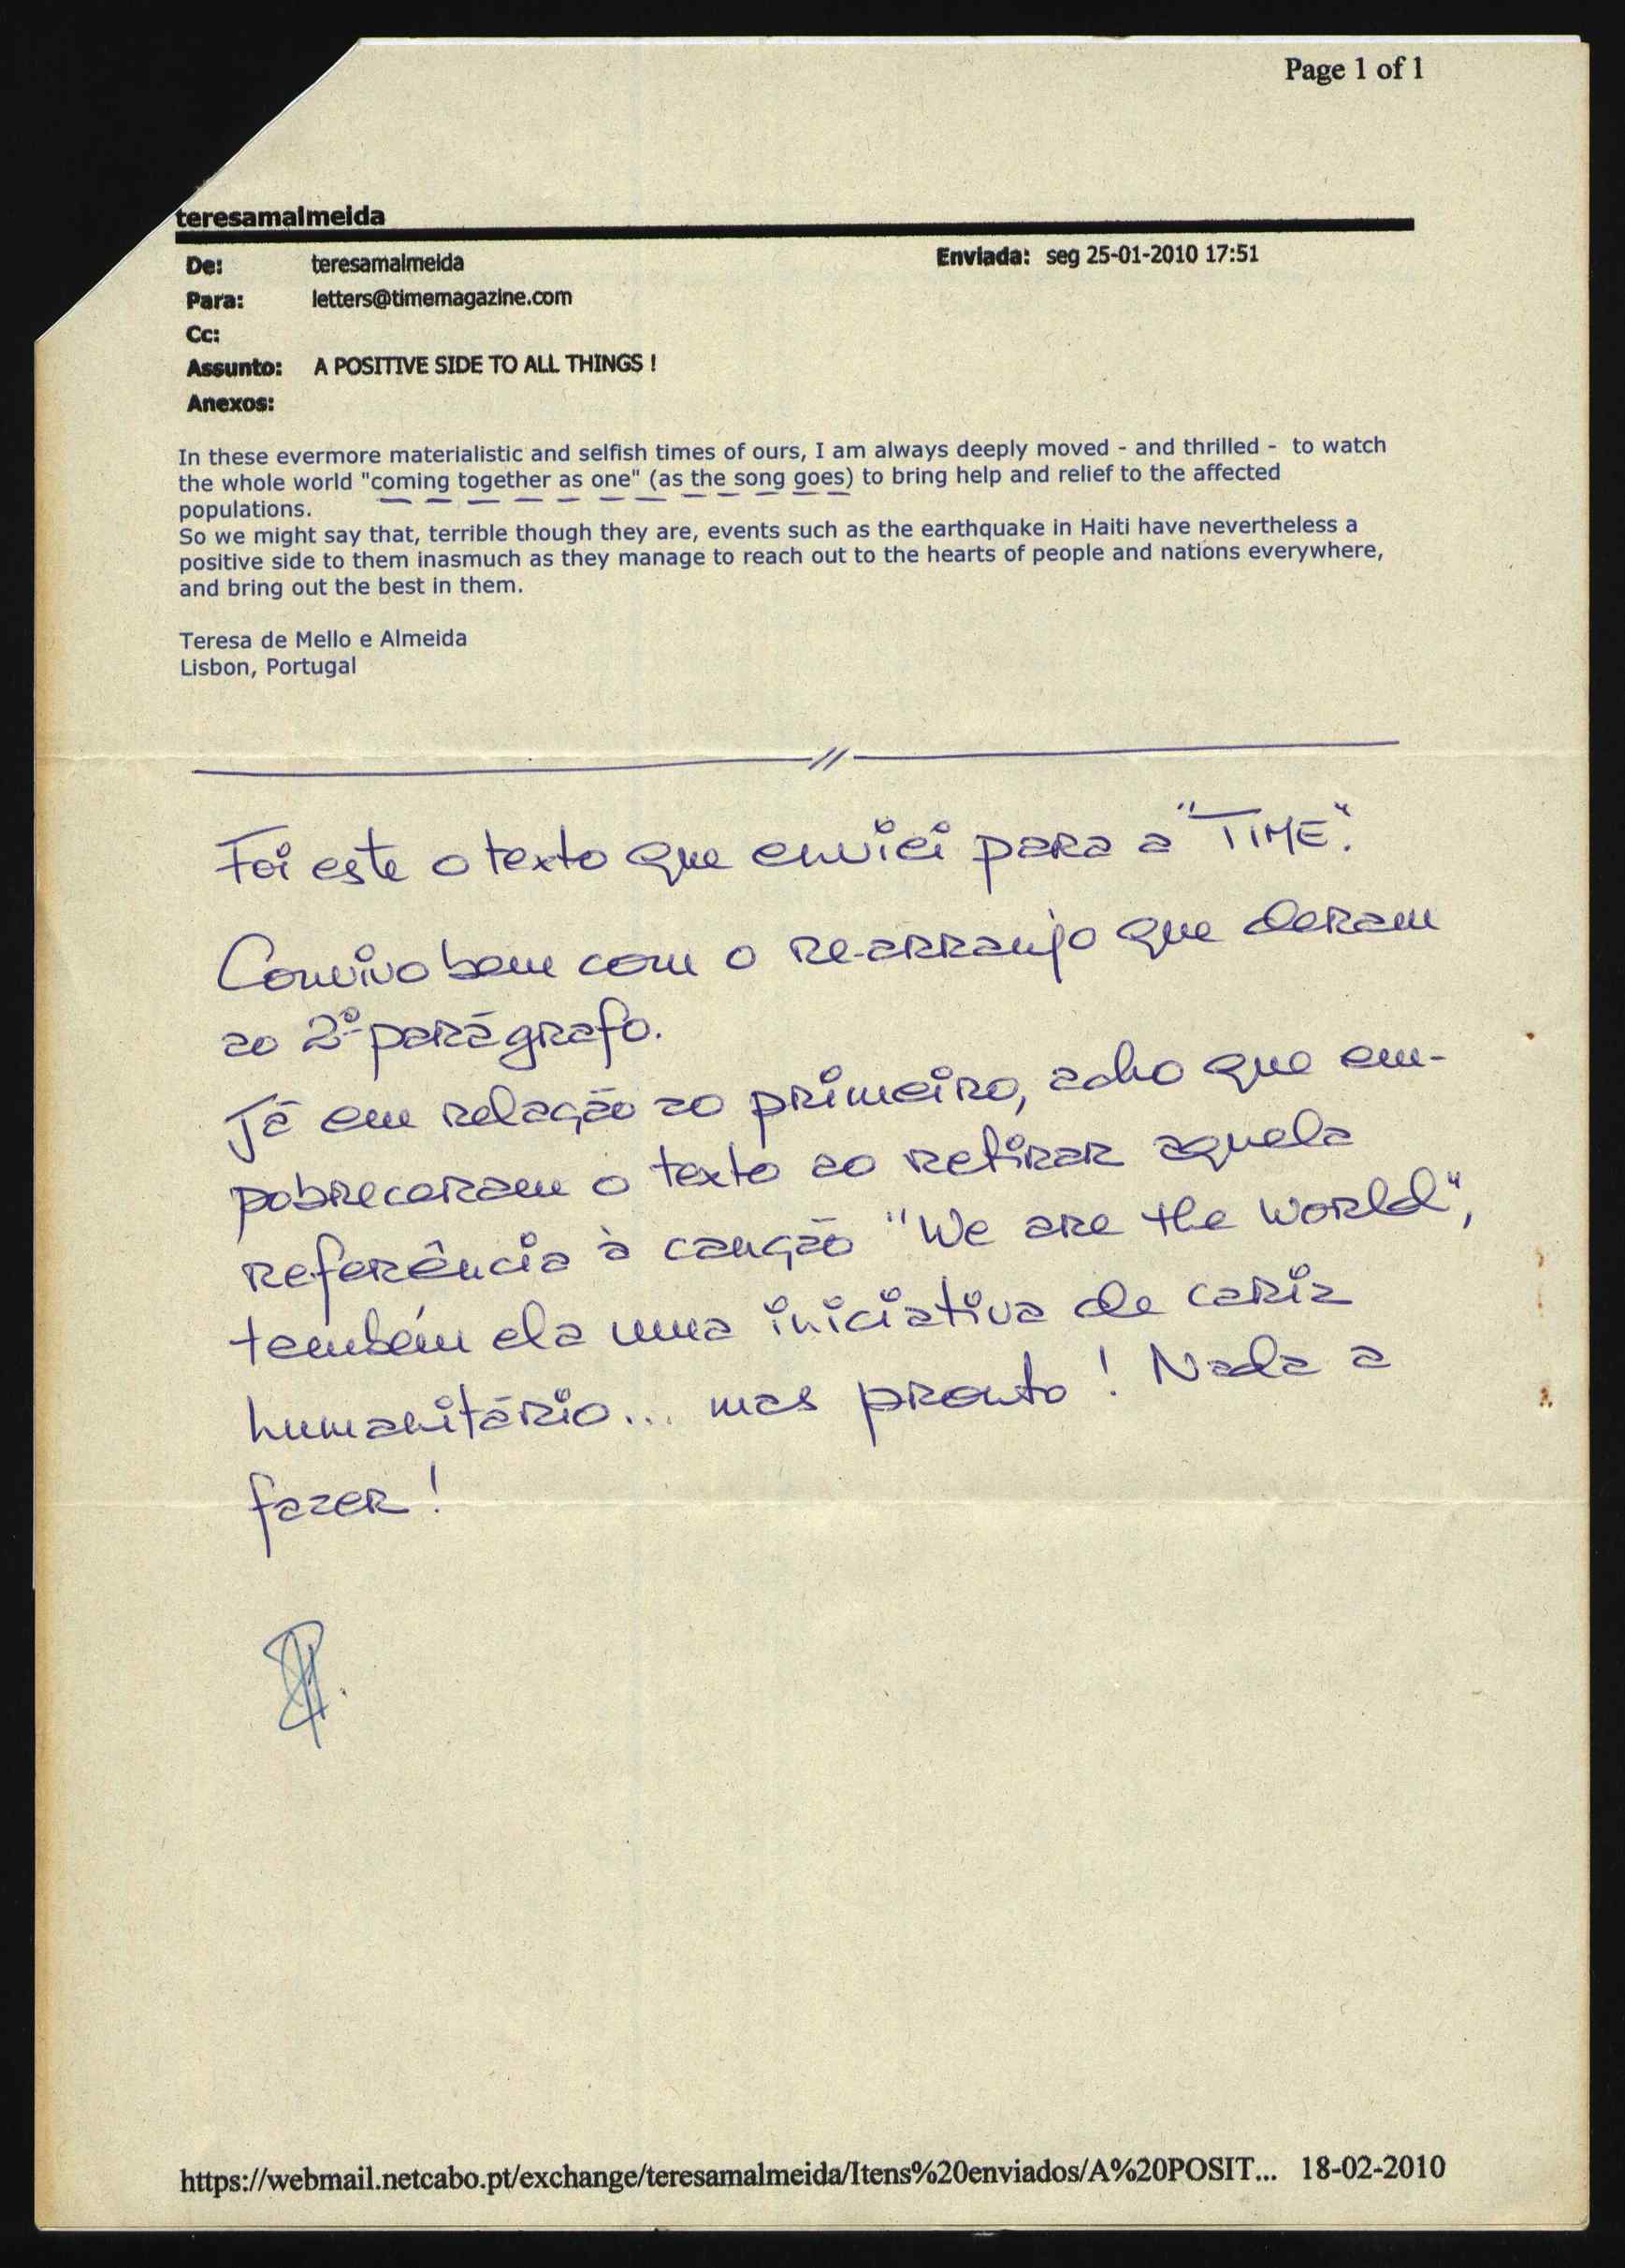 Page 1 of 1
teresamalmeida
De: teresamalmeida Enviada: seg 25-01-2010 17:51
Para: letters@timemagazine.com
Cc:
Assunto: A POSITIVE SIDE TO ALL THINGS !
Anexos:
In these evermore materialistic and selfish times of ours, I am always deeply moved - and thrilled - to watch
the whole world "coming together as one" (as the song goes) to bring help and relief to the affected
populations.
So we might say that, terrible though they are, events such as the earthquake in Haiti have nevertheless a
positive side to them inasmuch as they manage to reach out to the hearts of people and nations everywhere,
and bring out the best in them.
Teresa de Mello e Almeida
Lisbon, Portugal
Foi este o texto que enviei para a "TIME".
Convivo bem com o re-arranjo que deram
ao 2º parágrafo.
Já em relação ao primeiro, acho que em-
pobreceram o texto ao retirar aquela
referência à canção "We are the world",
também ela uma iniciativa de cariz
humanitário... mas pronto! Nada a
fazer!
https://webmail.netcabo.pt/exchange/teresamalmeida/Itens%20enviados/A%20POSIT... 18-02-2010